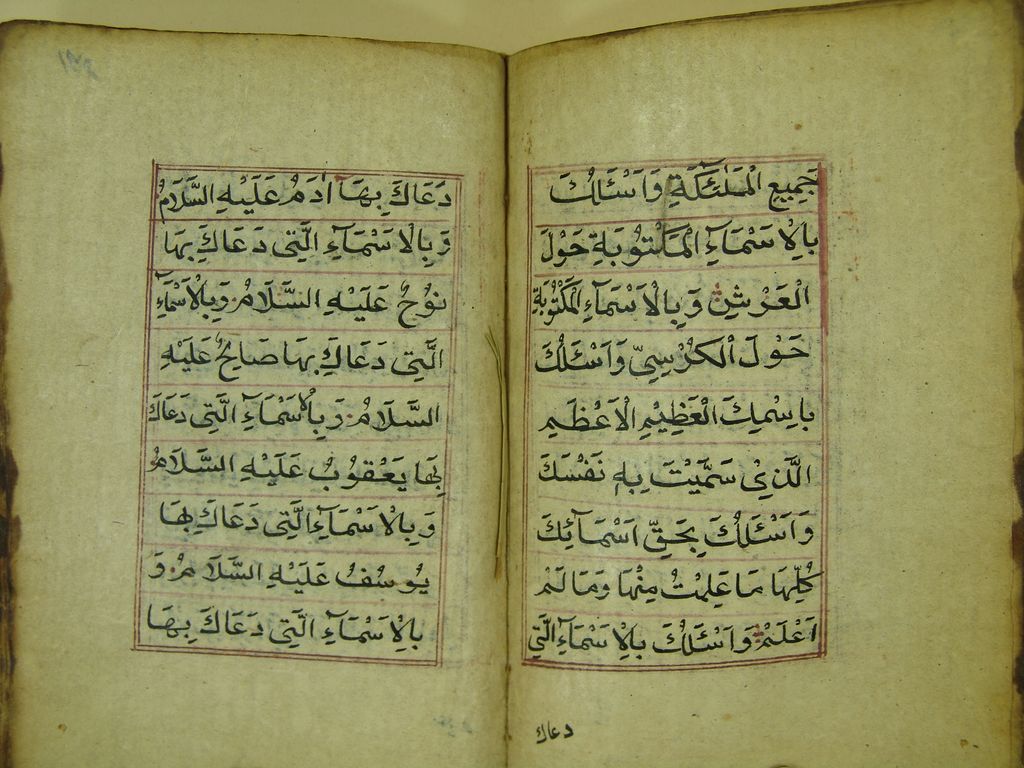 جَمِيعِ الْمَلٰئِكَةِ وَاَسْئَلُكَ
بِالْاَسْمَآءِ الْمَكْتُوْبَةِ حَوْلَ
الْعَرْشِ وَبِالْاَسْمَآءِ الْمَكْتُوْبَةِ
حَوْلَ الْكُرْسِيِّ وَاَسْئَلُكَ
بِاسْمِكَ الْعَظِيْمِ الْاَعْظَمِ
الَّذِيْ سَمَّيْتَ بِهٖ نَفْسَكَ
وَاَسْئَلُكَ بِحَقِّ اَسْمَآئِكَ
كُلِّهَا مَا عَلِمْتُ مِنْهَا وَمَا لَمْ
اَعْلَمْ وَاَسْئَلُكَ بِالْاَسْمَآءِ الَّتِيْ
دعاك
دَعَاكَ بِهَا اٰدَمُ عَلَيْهِ السَّلَامُ
وَبِالْاَسْمَآءِ الَّتِيْ دَعَاكَ بِهَا
نُوْحٌ عَلَيْهِ السَّلَامُ وَبِالْاَسْمَآءِ
الَّتِيْ دَعَاكَ بِهَا صَالِحٌ عَلَيْهِ
السَّلَامُ وَبِالْاَسْمَآءِ الَّتِيْ دَعَاكَ
بِهَا يَعْقُوْبُ عَلَيْهِ السَّلَامُ
وَبِالْاَسْمَآءِ الَّتِيْ دَعَاكَ بِهَا
يُوْسُفُ عَلَيْهِ السَّلَامُ وَ
بِالْاَسْمَآءِ الَّتِيْ دَعَاكَ بِهَا